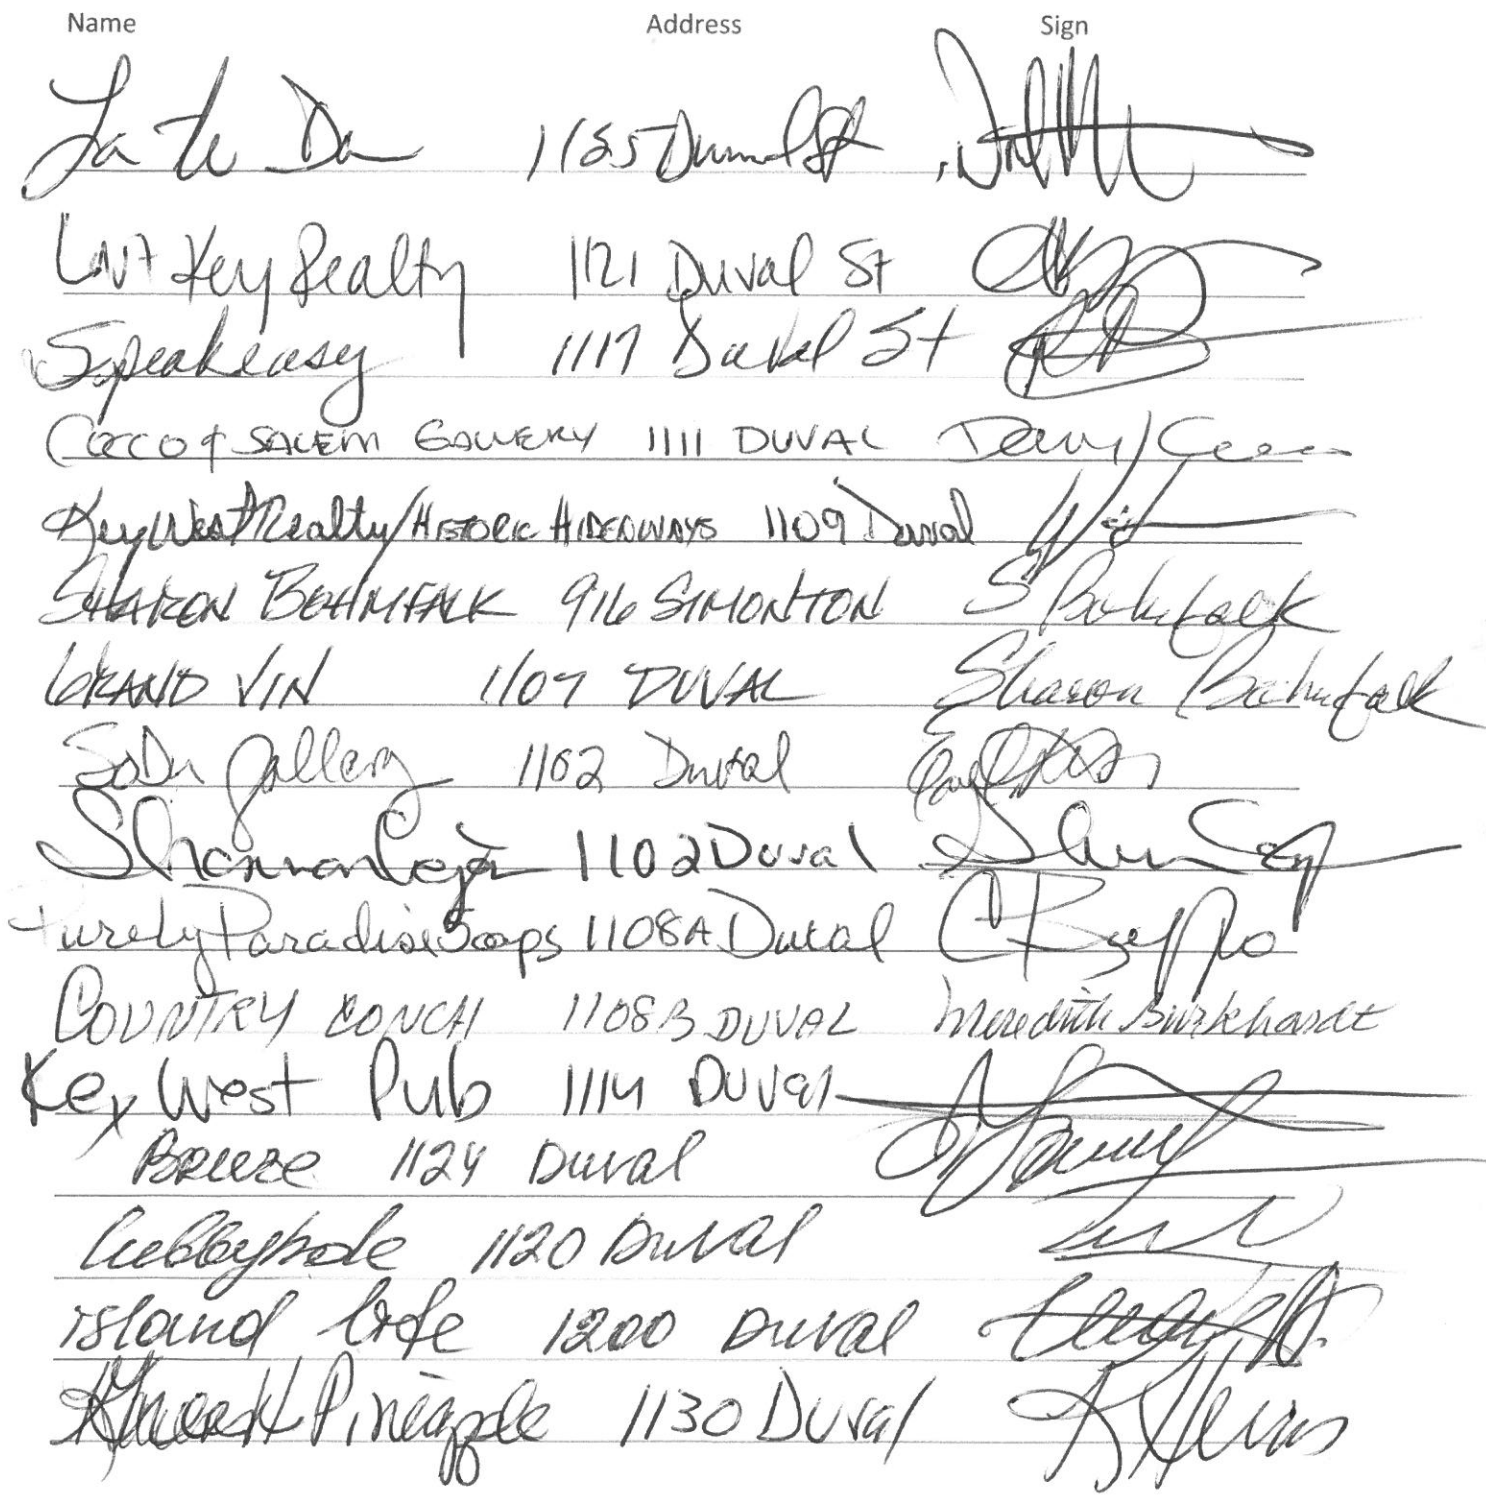 Name Address Sign
La Te Da 1125 Duval St
Last Key Realty 1121 Duval St
Speakeasy 1117 Duval St
COCCO & SALEM GALLERY 1111 DUVAL
Key West Realty/HISTORIC HIDEAWAYS 1109 Duval
SHARON BEHMFALK 916 SIMONTON S Behmfalk
GRAND VIN 1107 DUVAL Sharon Behmfalk
SoDu gallery 1102 Duval
Shannon 1102 Duval
Purely Paradise Soaps 1108A Duval C Beppo
COUNTRY CONCH 1108B DUVAL Meredith Burkhardt
Key West Pub 1114 Duval
Breeze 1124 Duval
Cubbyhole 1120 Duval
island life 1200 Duval
Pineapple 1130 Duval